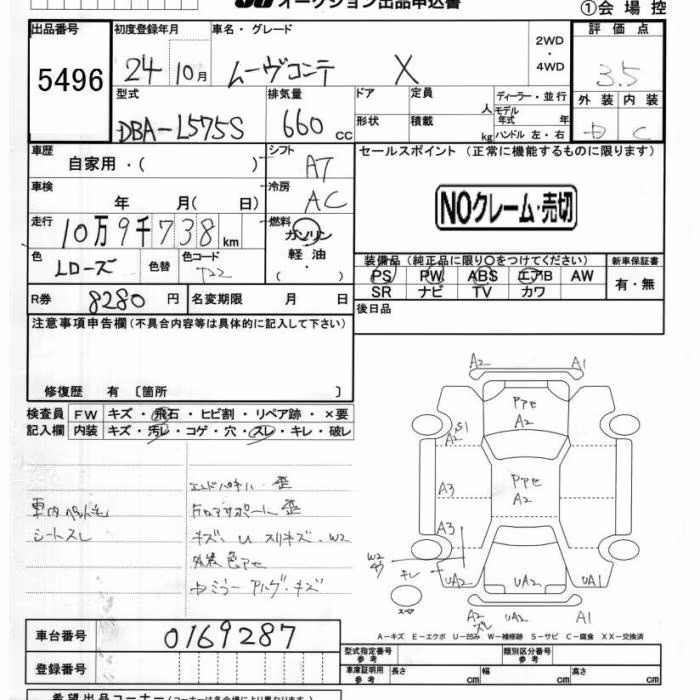 オークション出品申込書
①会場控
出品番号 初度登録年月 車名・グレード 2WD・4WD 評価点
5496 24 10月 ムーヴコンテ X 3.5
型式 排気量 ドア 定員 人 ディーラー・並行 外装 内装
モデル年式 年
DBA-L575S 660 cc 形状 積載 kg ハンドル 左・右 C
車歴 シフト セールスポイント (正常に機能するものに限ります)
自家用・( ) AT
車検 冷房
年 月( 日) AC
NOクレーム・売切
走行 燃料
10万9千738km ガソリン
軽油
・
( )
色 色替 色コード
Lローズ T22
装備品 (純正品に限り○をつけてください) 新車保証書
PS PW ABS エアB AW 有・無
SR ナビ TV カワ
R券 8280円 名変期限 月 日
後日品
注意事項申告欄(不具合内容等は具体的に記入して下さい)
修復歴 有 〔箇所 〕
検査員 FW キズ・飛石・ヒビ割・リペア跡・×要
記入欄 内装 キズ・汚レ・コゲ・穴・スレ・キレ・破レ
エンドパネル 歪
車内ペット毛
シートスレ
キズ U スリキズ・W2
外装色アセ
A2 A1
アセ
A2
S1
A2
アセ
A2
A3
A3
W2
キレ UA2 UA2 UA1
スペア
A2 UA2 A1
スレ
A-キズ E-エクボ U-凹み W-補修跡 S-サビ C-腐食 XX-交換済
車台番号 0169287
型式指定番号 参考 類別区分番号 参考
登録番号
車庫証明用 参考 長さ cm 幅 cm 高さ cm
希望出品コーナー(コーナーは各会場により異なります)